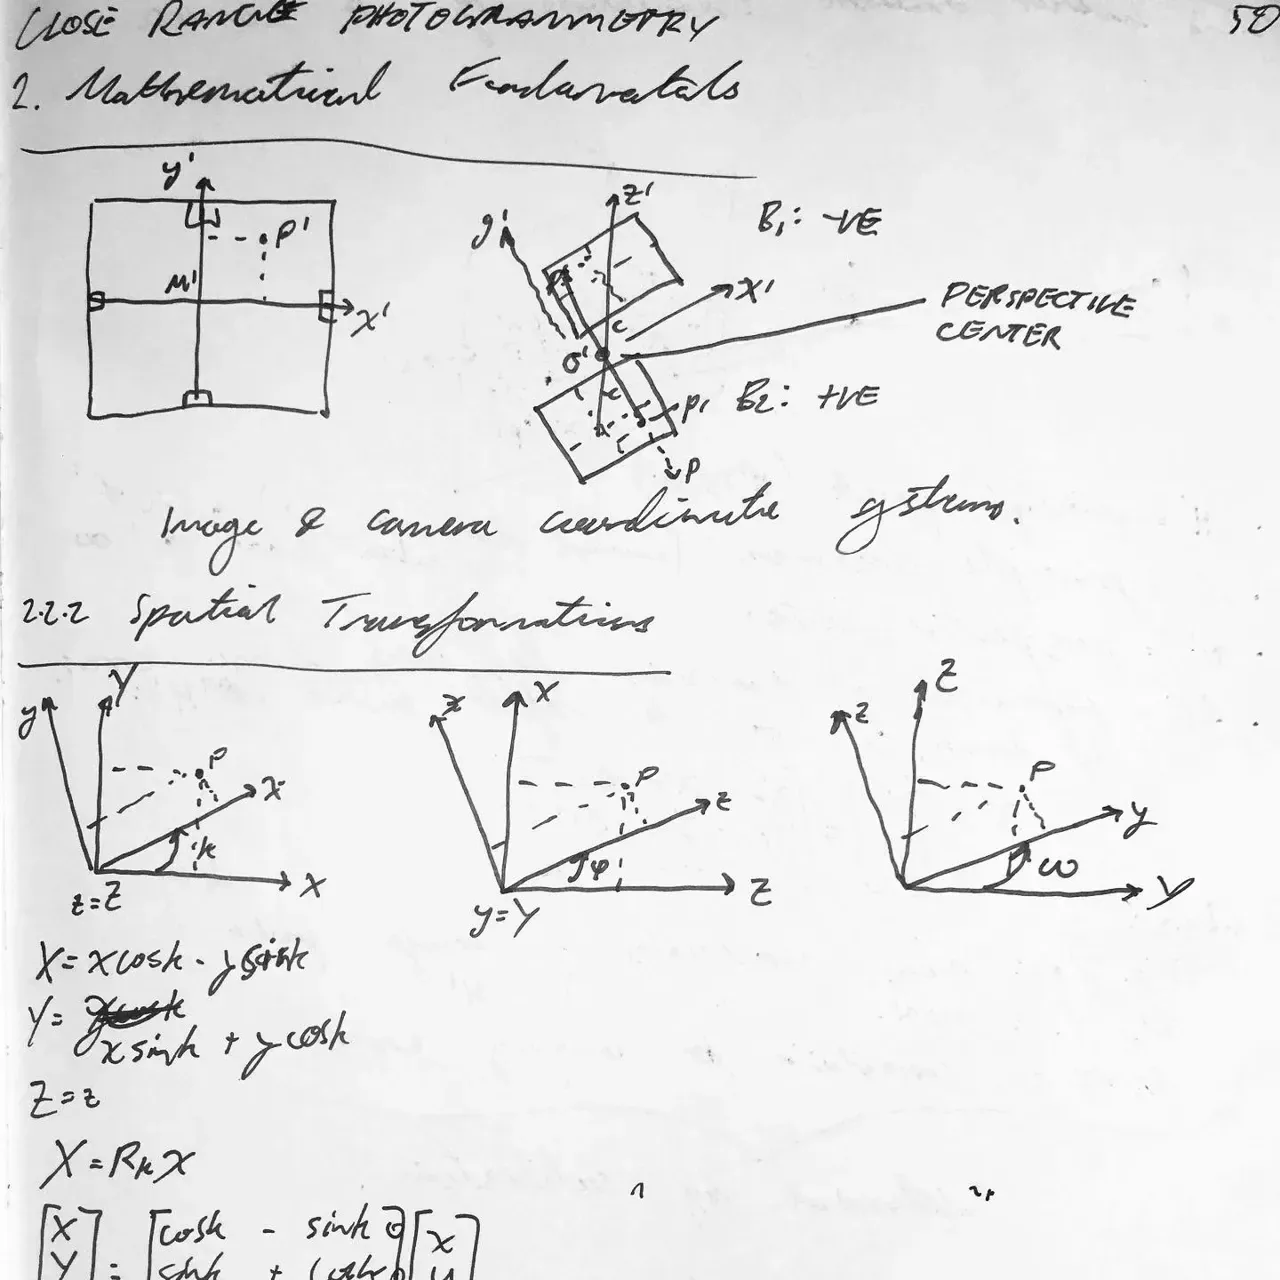 CLOSE RANGE PHOTOGRAMMETRY 50
2. Mathematical Fundamentals
y'
P'
M'
x'
z'
y'
B₁: -VE
x'
c
O'
PERSPECTIVE
CENTER
c
P'
B₂: +VE
P
Image & camera coordinate systems.
2.2.2 Spatial Transformations
y Y P x k X
z=Z
x X P z φ Z
y=Y
z Z P y ω Y
X = x cosk - y sink
Y =
x sink + y cosk
Z = z
X = Rk x
[X] [cosk - sink 0] [x]
[Y] = [sink + cosk 0] [y]